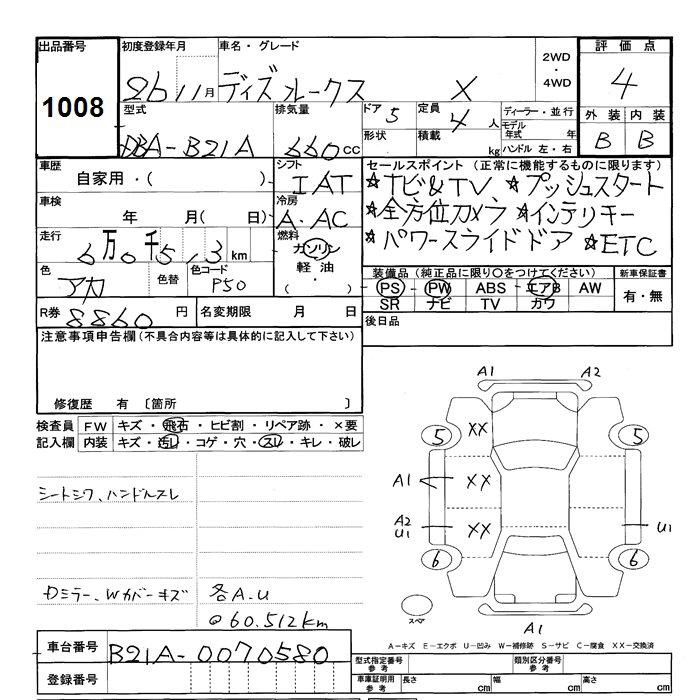 出品番号
1008
初度登録年月
26 11月
車名・グレード
ディズ ルークス X
2WD
・
4WD
評価点
4
外装 内装
B B
型式
DBA-B21A
排気量
660cc
ドア 5
定員 4人
ディーラー・並行
形状
積載 kg
モデル年式 年
ハンドル 左・右
車歴
自家用・( )
シフト
IAT
セールスポイント (正常に機能するものに限ります)
☆ナビ&TV ☆プッシュスタート
☆全方位カメラ ☆インテリキー
☆パワースライドドア ☆ETC
車検
年 月( 日)
冷房
A.AC
走行
6万0千513km
燃料
ガソリン
・
軽油
・
( )
色
アカ
色替
色コード
P50
装備品 (純正品に限り〇をつけてください)
PS PW ABS エアB AW
SR ナビ TV カワ
新車保証書
有・無
R券 8860円
名変期限 月 日
後日品
注意事項申告欄(不具合内容等は具体的に記入して下さい)
修復歴 有 〔箇所 〕
検査員記入欄
FW キズ・飛石・ヒビ割・リペア跡・×要
内装 キズ・汚レ・コゲ・穴・スレ・キレ・破レ
シートシワ、ハンドルスレ
ドミラー、Wカバーキズ
各A.U
@60.512km
A1 A2
5 XX 5
A1 XX
A2
U1 XX U1
6 6
スペア
A1
A-キズ E-エクボ U-凹み W-補修跡 S-サビ C-腐食 XX-交換済
車台番号
B21A-0070580
登録番号
型式指定番号 参考
類別区分番号 参考
車庫証明用 参考
長さ cm
幅 cm
高さ cm